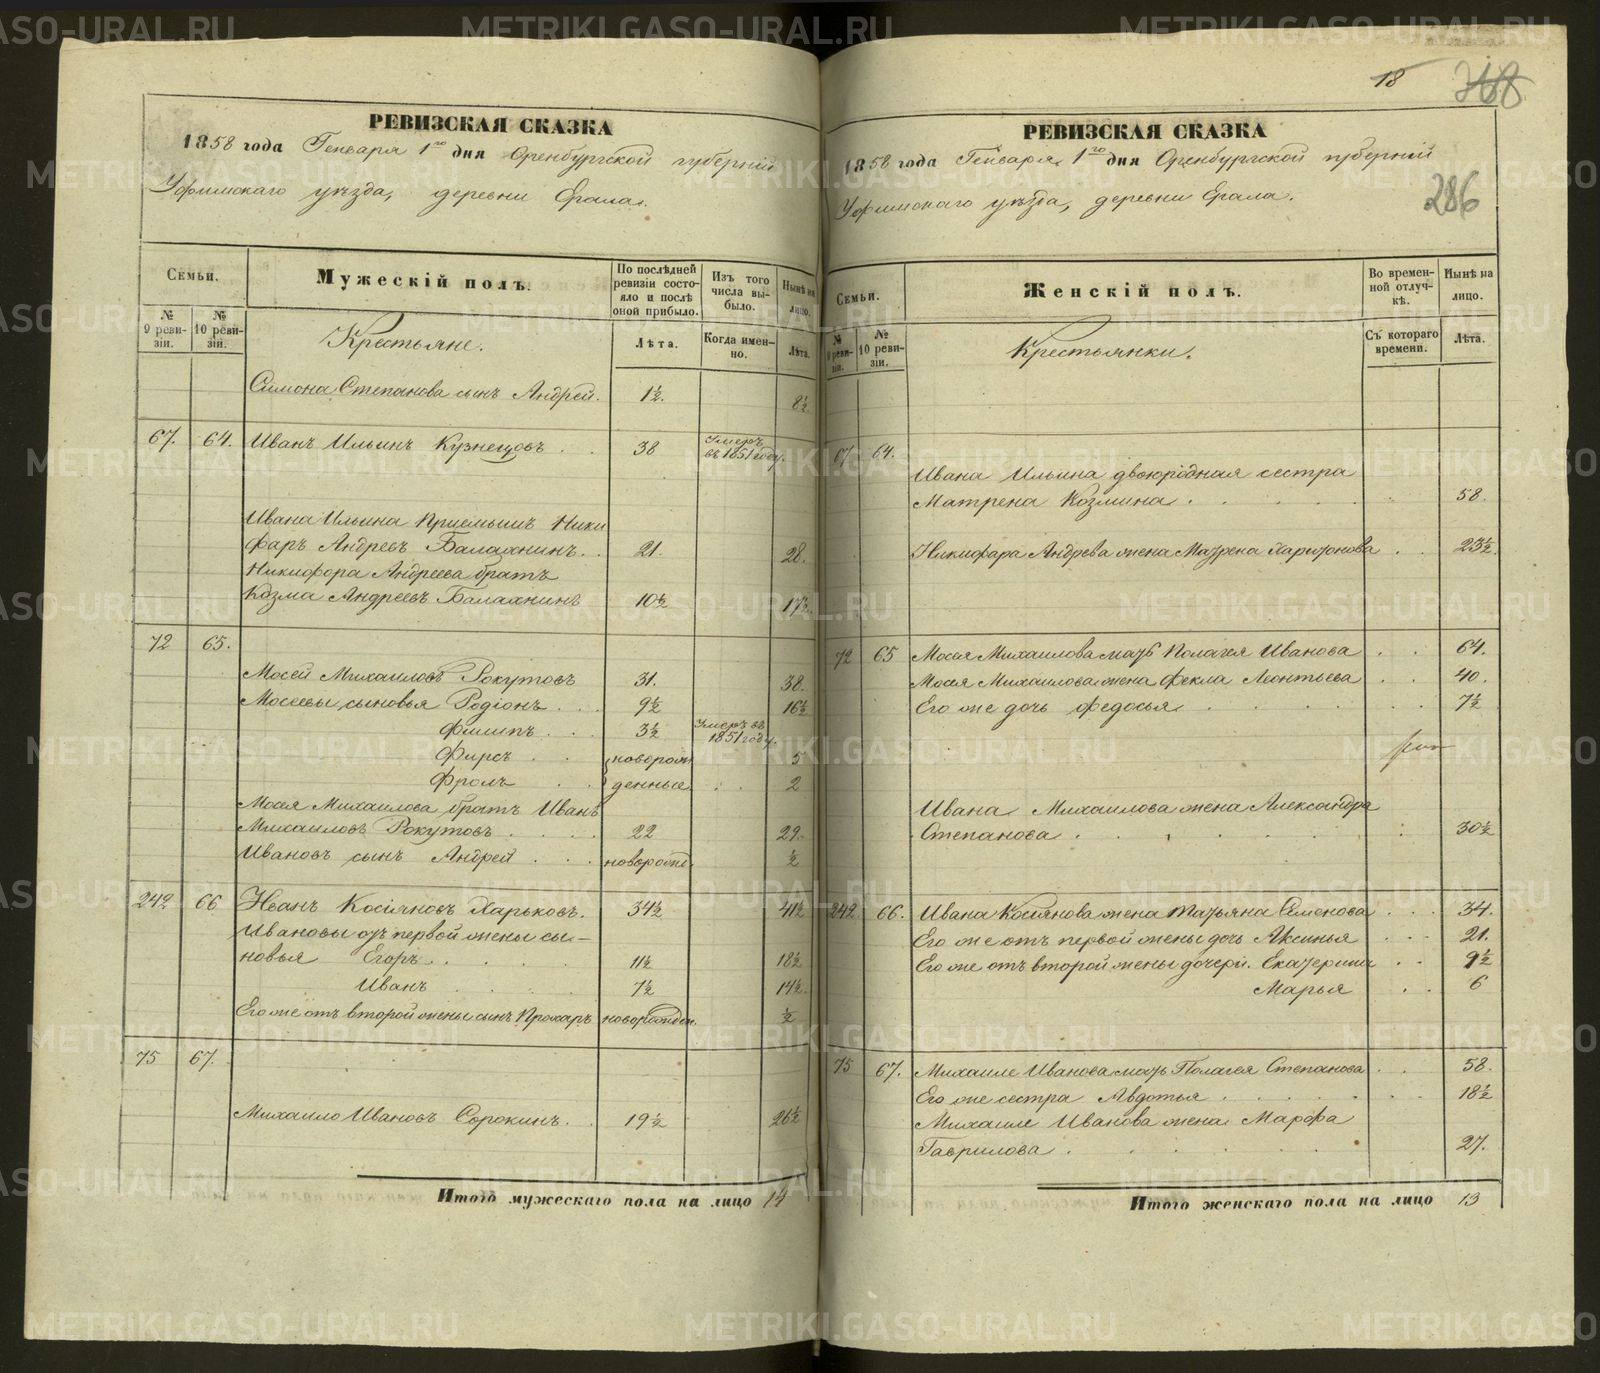 РЕВИЗСКАЯ СКАЗКА
1858 года Генваря 1го дня Оренбургской губерніи
Уфимскаго уѣзда, деревни Ерала.
Семьи.
Мужескій полъ.
По послѣдней ревизіи состояло и послѣ оной прибыло.
Изъ того числа выбыло.
Нынѣ на лицо.
№ 9 ревизіи.
№ 10 ревизіи.
Крестьяне.
Лѣта.
Когда именно.
Лѣта.
Симона Степанова сынъ Андрей. 1½. 8½
67. 64. Иванъ Ильинъ Кузнецовъ . . 38 Умеръ въ 1851 году.
Ивана Ильина Приемышъ Ники
фаръ Андреевъ Балахнинъ. . 21. 28.
Никифора Андреева братъ
Козма Андреевъ Балахнинъ 10½ 17½
72 65.
Мосей Михаиловъ Рокутовъ 31. 38.
Мосеевы сыновья Родіонъ . . . 9½ 16½
Филипъ . . . 3½ Умеръ въ 1851 году.
Фирсъ . . новорож 5
Фролъ . . денные . . 2
Мосея Михаилова братъ Иванъ
Михаиловъ Рокутовъ . . . . 22 29.
Ивановъ сынъ Андрей . . . новорожд. ½
242 66 Иванъ Косіяновъ Харьковъ. 34½ 41½
Ивановы отъ первой жены сы-
новья Егоръ . . . . . 11½ 18½
Иванъ . . . . 7½ 14½.
Его же отъ второй жены сынъ Прохаръ новорожден. ½
75 67.
Михайло Ивановъ Сорокинъ. . 19½ 26½
Итого мужескаго пола на лицо 14
18 768
286
РЕВИЗСКАЯ СКАЗКА
1858 года Генваря 1го дня Оренбургской губерніи
Уфимскаго уѣзда, деревни Ерала.
Семьи.
Женскій полъ.
Во временной отлучкѣ.
Нынѣ на лицо.
№ 9 ревизіи.
№ 10 ревизіи.
Крестьянки.
Съ котораго времени.
Лѣта.
67 64.
Ивана Ильина двоюродная сестра
Матрена Козмина . . . . . 58.
Никифара Андрева жена Мавра Харитонова . . 23½.
72 65 Мосея Михаилова мать Полагея Иванова . . 64.
Мосея Михаилова жена Фекла Леонтьева . . 40.
Его же дочь Федосья . . . . . . . 7½
Ивана Михаилова жена Александра
Степанова . . . . . . . 30½
242 66. Ивана Косіянова жена Татьяна Семенова . . . 34.
Его же отъ первой жены дочь Аксинья . . . 21.
Его же отъ второй жены дочери. Екатерина . . 9½
Марья . . 6
75 67. Михаиле Иванова мать Полагея Степанова . . 58.
Его же сестра Авдотья . . . . . . 18½
Михаиле Иванова жена Марфа
Гаврилова . . . . . . 27.
Итого женскаго пола на лицо 13
METRIKI.GASO-URAL.RU